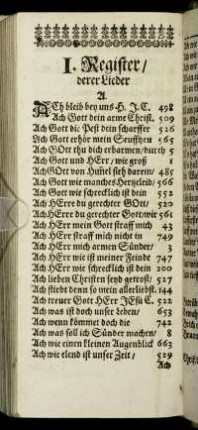 I. Register/
derer Lieder
A.
ACh bleib bey uns H. J. C. 498
Ach Gott dein arme Christ. 509
Ach Gott die Pest dein scharffer 526
Ach Gott erhör mein Seuffzen 565
Ach GOtt thu dich erbarmen/durch 5
Ach Gott und HErr/ wie groß 1
Ach GOtt von Himel sieh darein/ 485
Ach Gott wie manches Hertzeleid/ 566
Ach Gott wie schrecklich ist dein 552
Ach HErre du gerechter GOtt/ 520
Ach HErre du gerechter Gott/wie 561
Ach HErr mein Gott straff mich 43
Ach HErr straff mich nicht in 749
Ach HErr mich armen Sünder/ 3
Ach HErr wie ist meiner Feinde 747
Ach HErr wie schrecklich ist dein 200
Ach lieben Christen seyd getrost/ 517
Ach stirbt denn so mein allerliebst. 144
Ach treuer Gott HErr JEsu C. 522
Ach was ist doch unser Leben/ 653
Ach wenn kömmet doch die 742
Ach was soll ich Sünder machen/ 8
Ach wie einen kleinen Augenblick 663
Ach wie elend ist unser Zeit/ 529
Ach